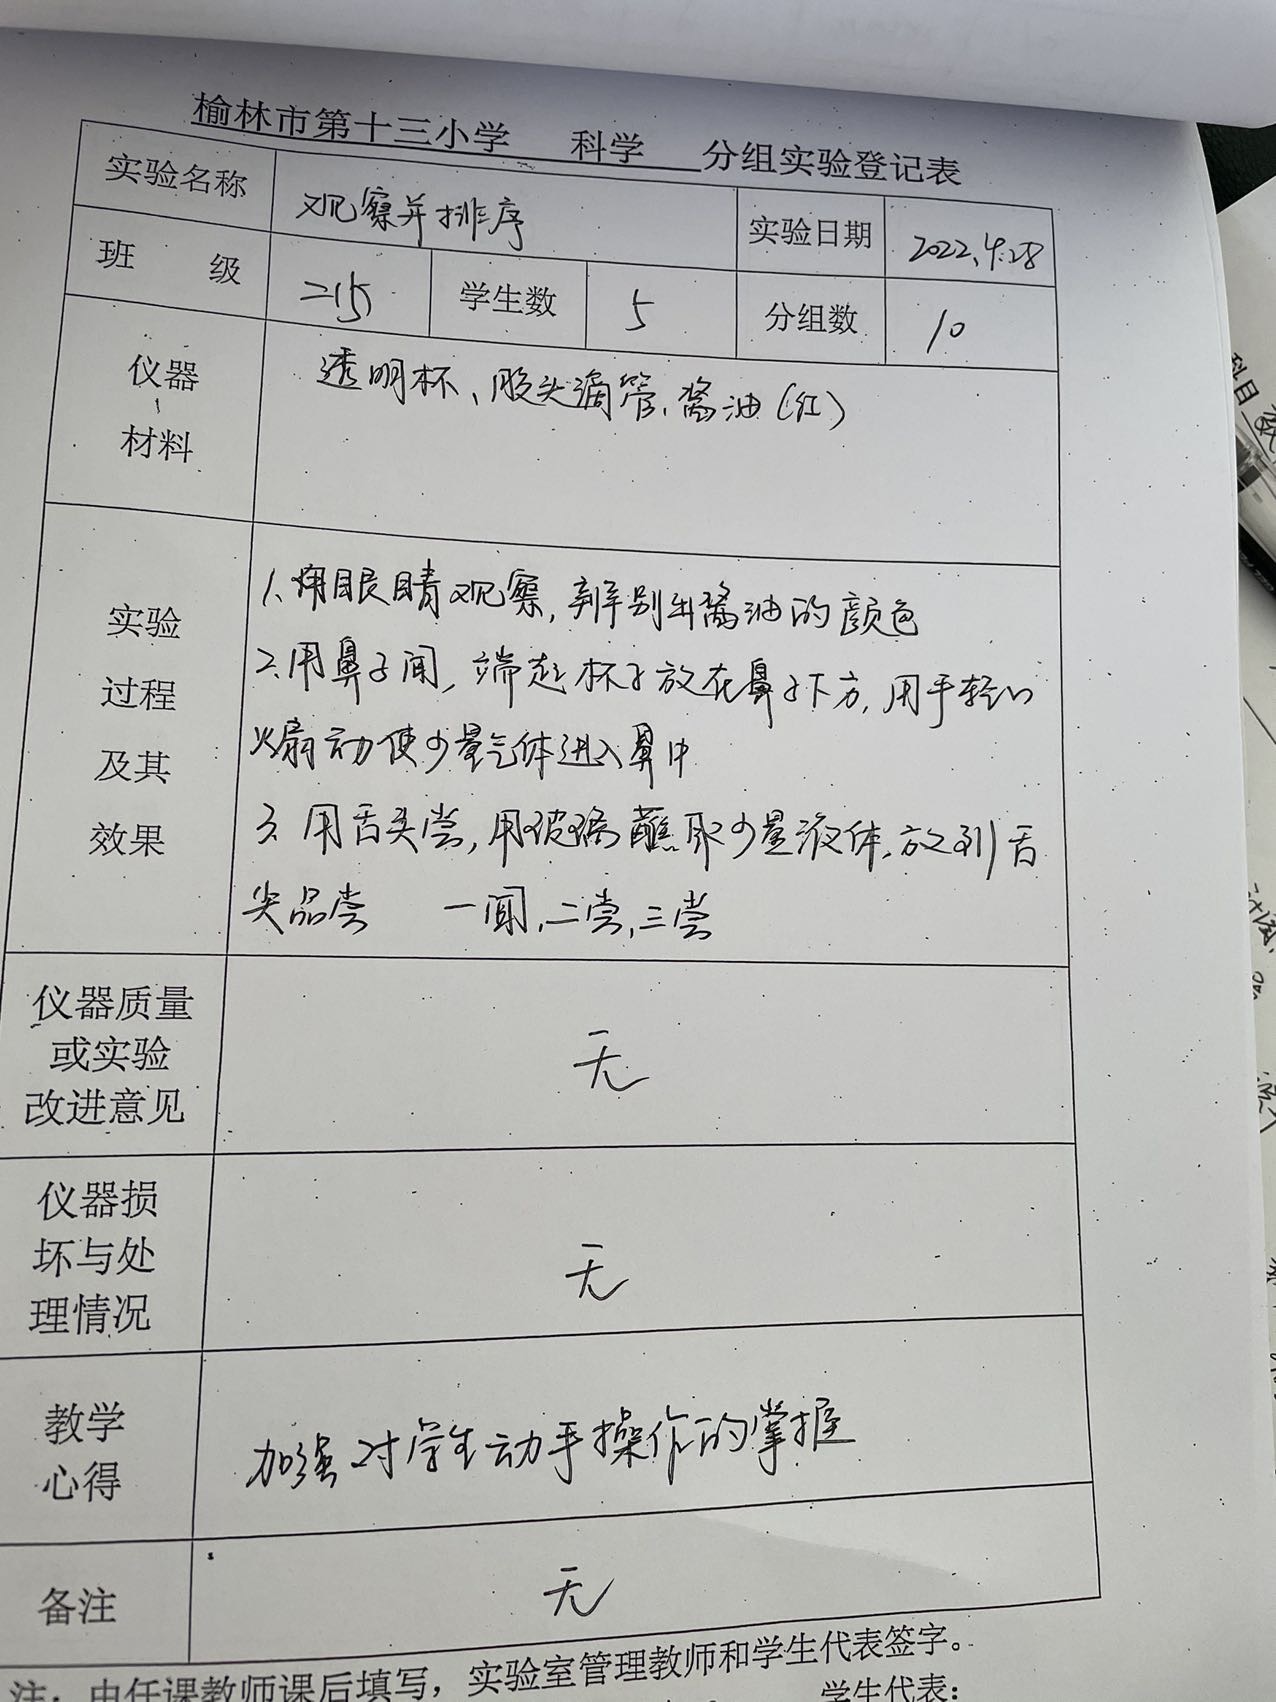 榆林市第十三小学 科学 分组实验登记表
实验名称 观察并排序 实验日期 2022.4.28
班 级 二15 学生数 5 分组数 10
仪器
、
材料
透明杯、胶头滴管、酱油(红)
实验
过程
及其
效果
1、用眼睛观察,辨别出酱油的颜色
2.用鼻子闻,端起杯子放在鼻子下方,用手轻轻
扇动使少量气体进入鼻中
3.用舌头尝,用玻璃蘸取少量液体,放到舌
尖品尝 一闻,二尝,三尝
仪器质量
或实验
改进意见
无
仪器损
坏与处
理情况
无
教学
心得
加强对学生动手操作的掌握
备注 无
注:由任课教师课后填写,实验室管理教师和学生代表签字。
学生代表:
科目